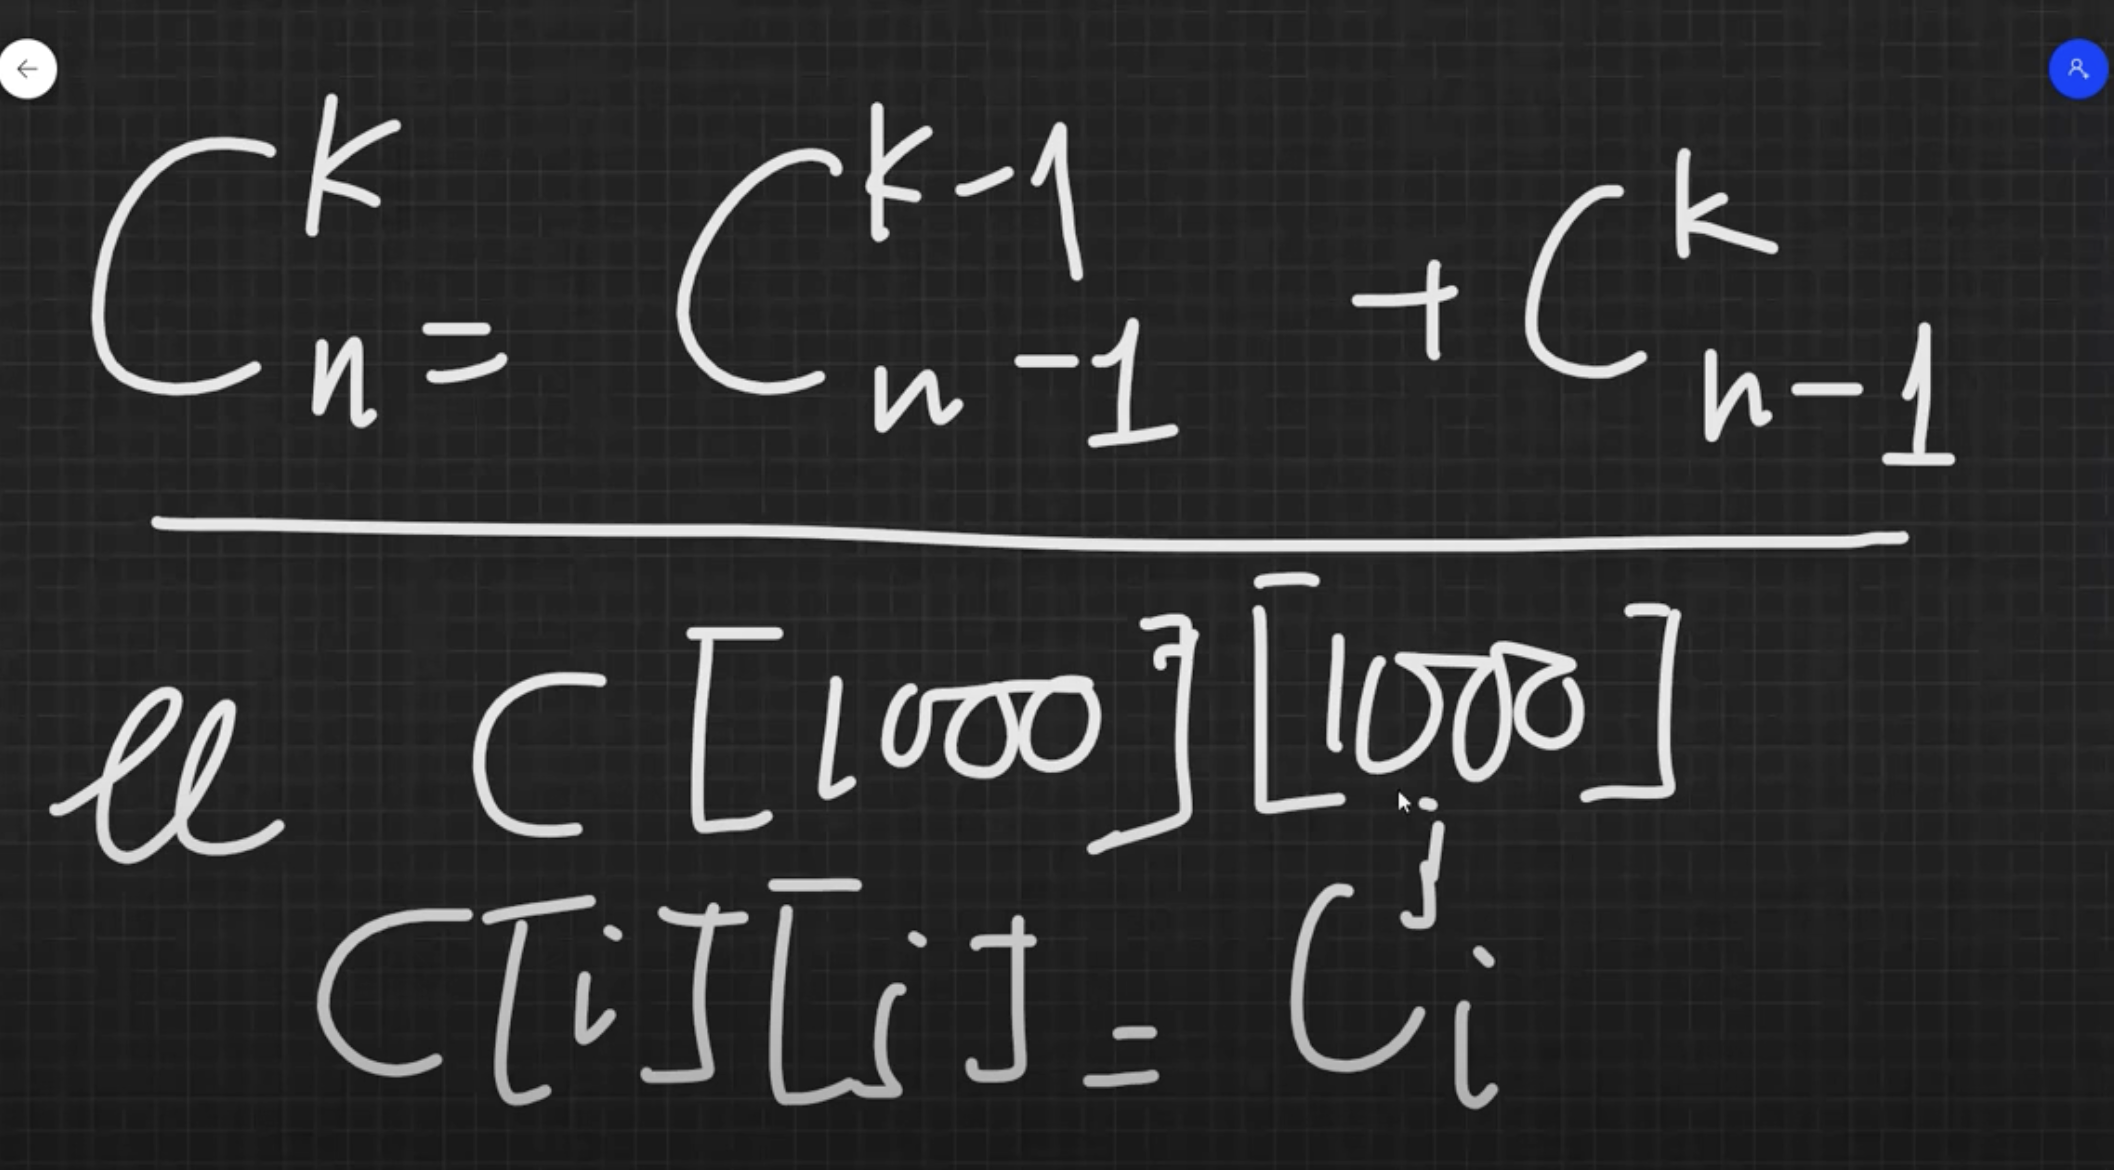 C_n^k = C_{n-1}^{k-1} + C_{n-1}^k
ll C[1000][1000]
C[i][j] = C_i^j